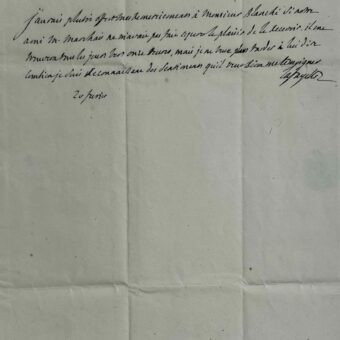 J'aurais plutot offert mes remerciements à Monsieur Blanchi si notre
ami M. Marchais ne m'avait pas fait esperer le plaisir de le recevoir. il me
trouvera tous les jours vers onze heures, mais je ne veux pas tarder à lui dire
combien je suis reconnaissant des sentiments qu'il veut bien me temoigner
Lafayette